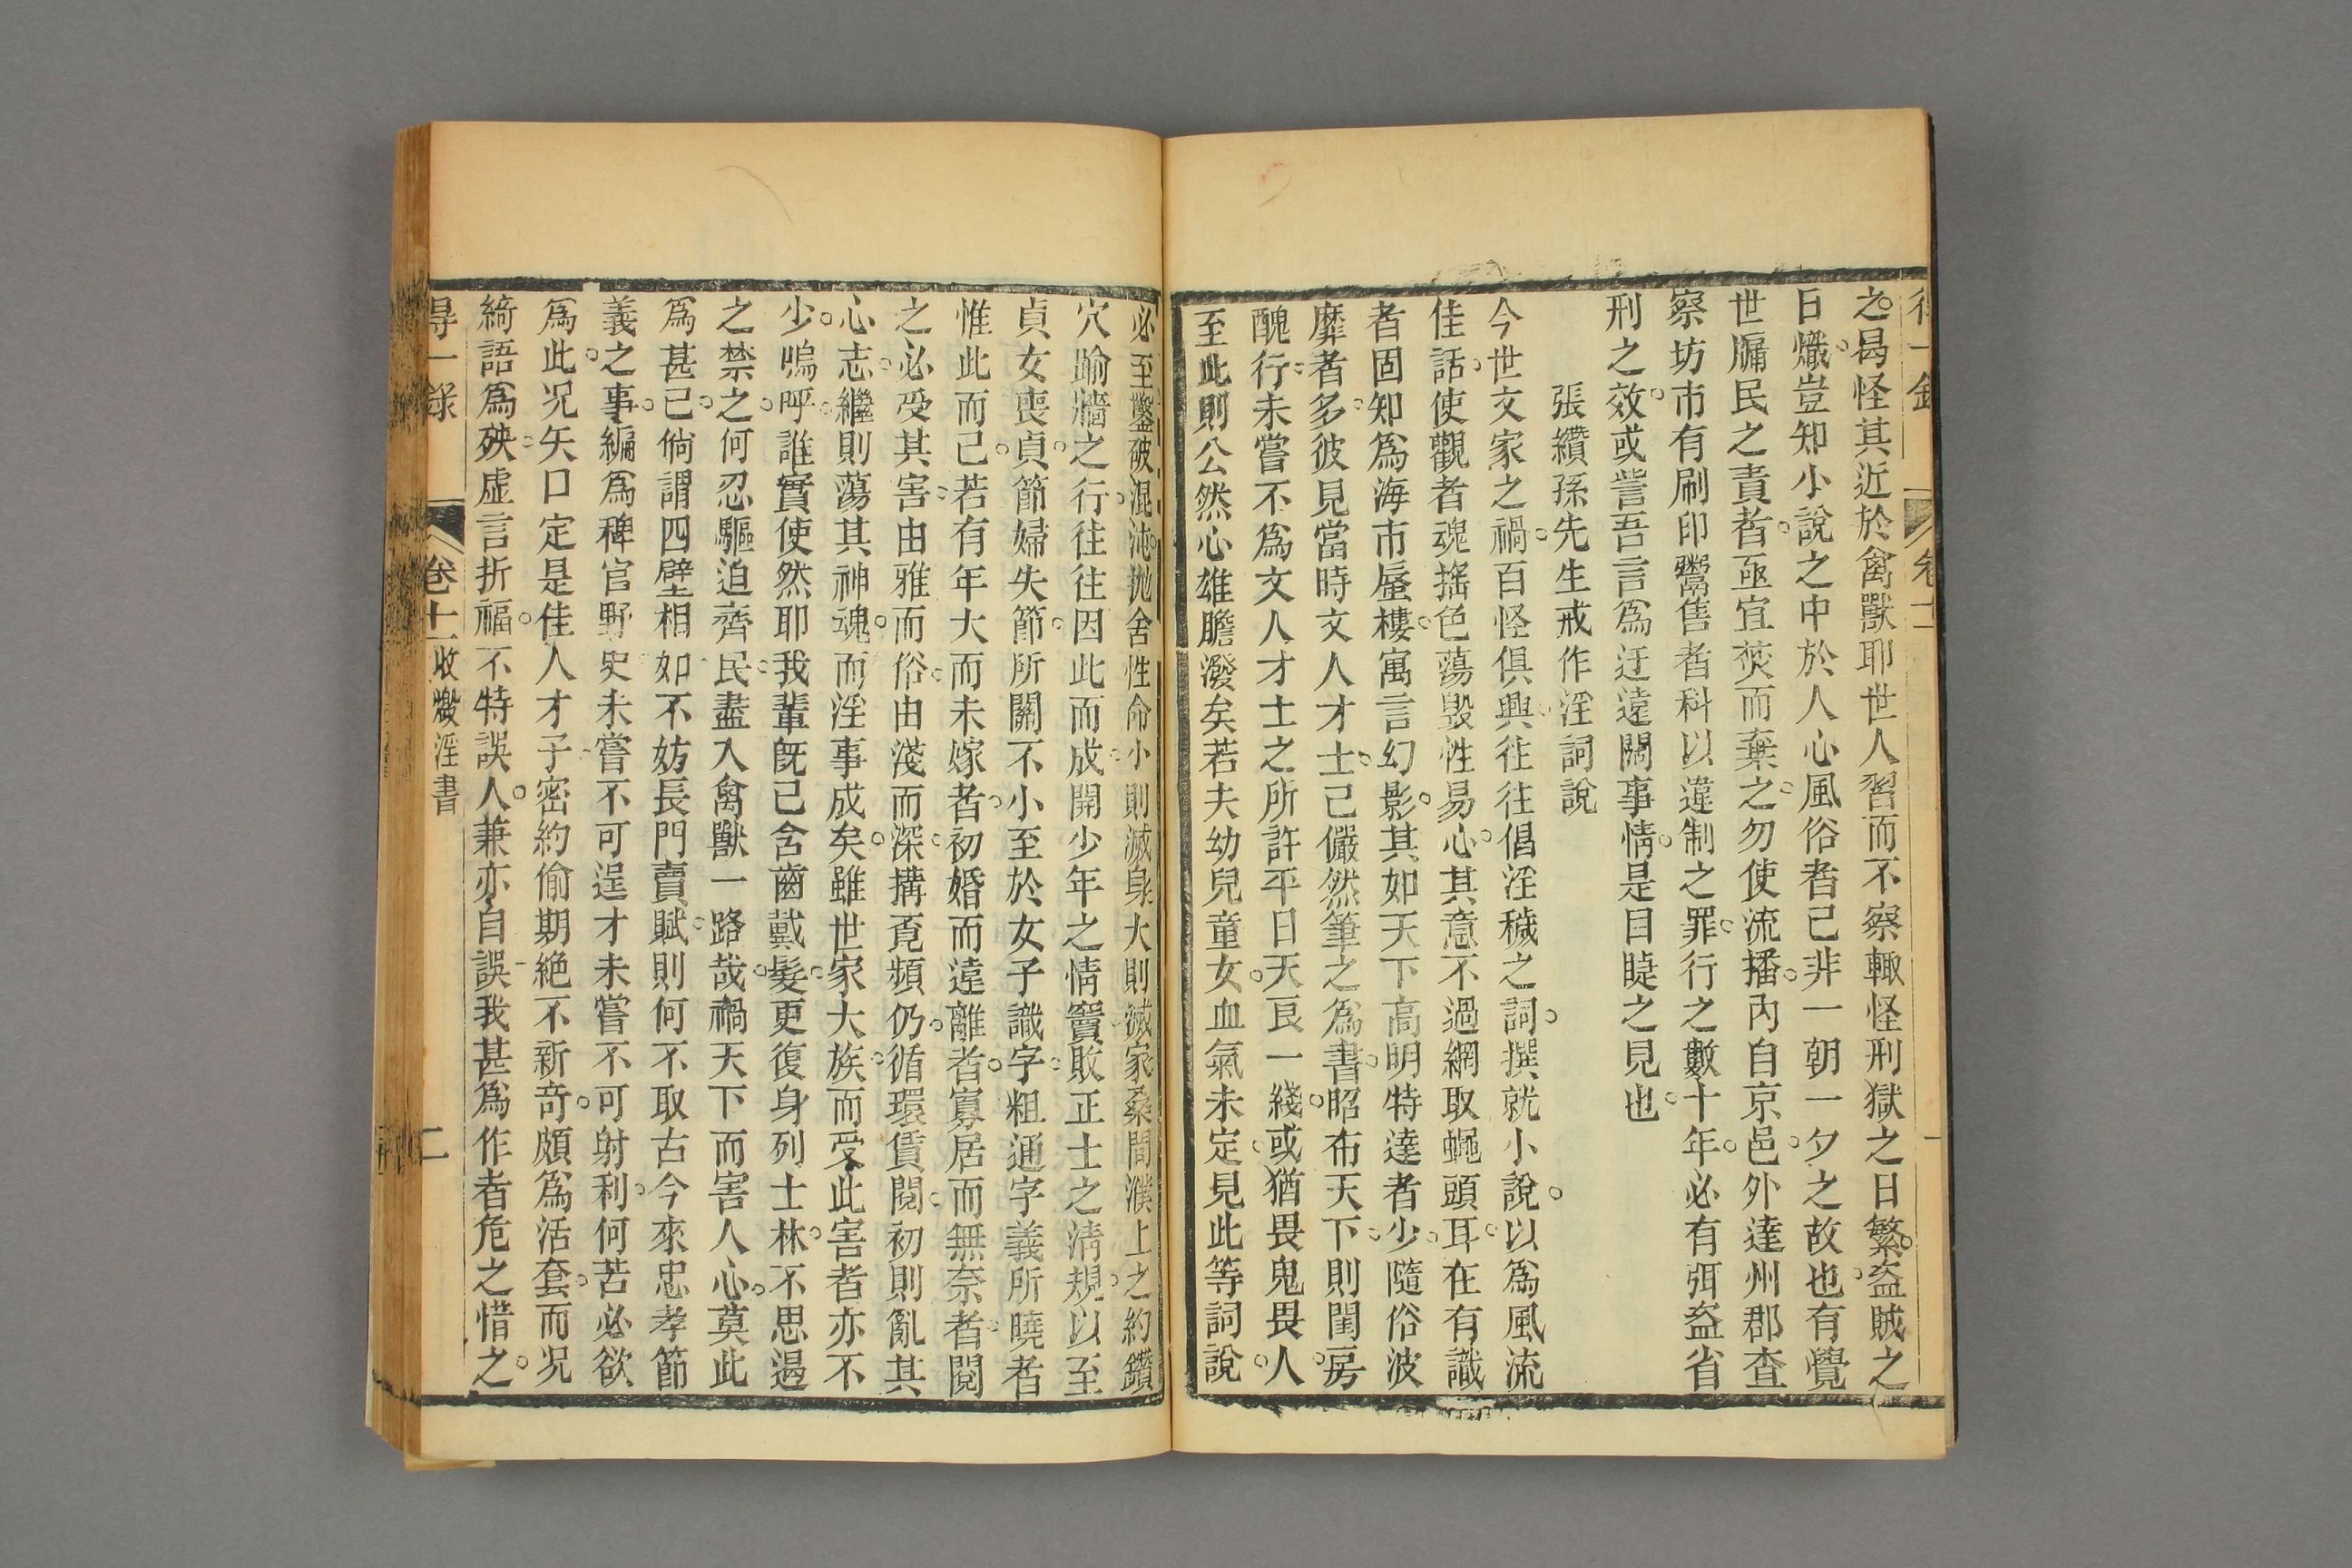 之曷怪其近於禽獸耶世人習而不察輙怪刑獄之日繁盜賊之
日熾豈知小說之中於人心風俗者已非一朝一夕之故也有覺
世牖民之責者亟宜焚而棄之勿使流播內自京邑外達州郡查
察坊市有刷印鬻售者科以違制之罪行之數十年必有弭盜省
刑之效或訾吾言爲迂遠闊事情是目睫之見也
張纘孫先生戒作淫詞說
今世文家之禍百怪俱興徃徃倡淫穢之詞撰就小說以爲風流
佳話使觀者魂搖色蕩毀性易心其意不過網取蠅頭耳在有識
者固知爲海市蜃樓寓言幻影其如天下高明特達者少隨俗波
靡者多彼見當時文人才士已儼然筆之爲書昭布天下則閨房
醜行未嘗不爲文人才士之所許平日天良一綫或猶畏鬼畏人
至此則公然心雄膽潑矣若夫幼兒童女血氣未定見此等詞說
必至鑿破混沌拋舍性命小則滅身大則滅家桑間濮上之約鑽
穴踰牆之行往往因此而成開少年之情竇敗正士之淸規以至
貞女喪貞節婦失節所關不小至於女子識字粗通字義所曉者
惟此而已若有年大而未嫁者初婚而遠離者寡居而無奈者閱
之必受其害由雅而俗由淺而深搆覓頻仍循環賃閱初則亂其
心志繼則蕩其神魂而淫事成矣雖世家大族而受此害者亦不
少嗚呼誰實使然耶我輩旣已含齒戴髮更復身列士林不思遏
之禁之何忍驅迫齊民盡入禽獸一路哉禍天下而害人心莫此
爲甚已倘謂四壁相如不妨長門賣賦則何不取古今來忠孝節
義之事編爲稗官野史未嘗不可逞才未嘗不可射利何苦必欲
爲此况矢口定是佳人才子密約偷期絕不新奇頗爲活套而况
綺語爲殃虛言折福不特誤人兼亦自誤我甚爲作者危之惜之
得一錄 卷十一 收燬淫書 二